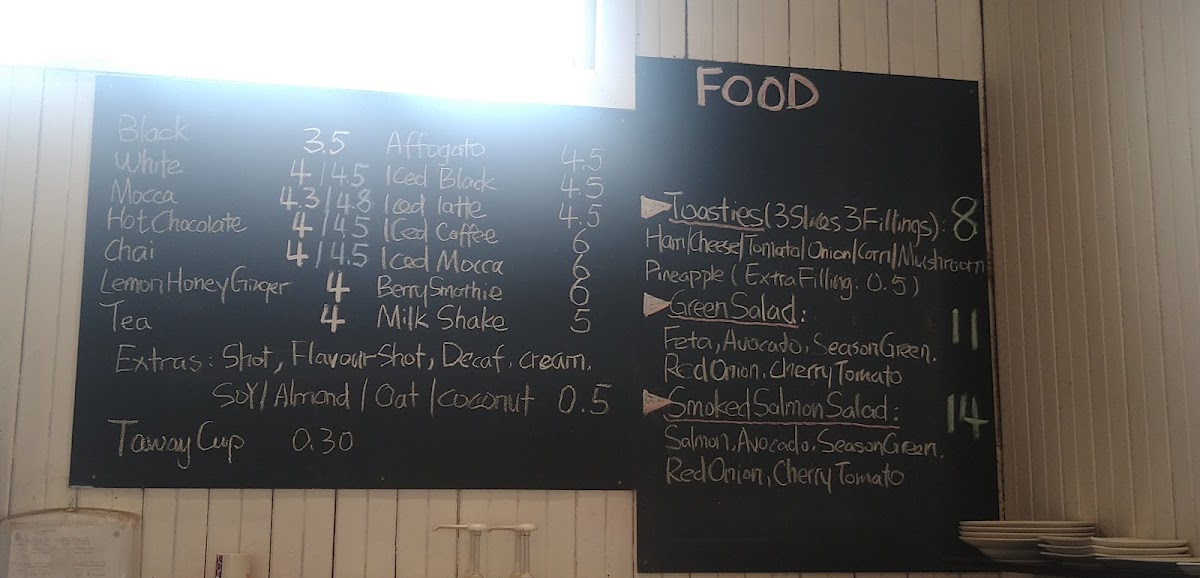 Black 3.5
White 4/4.5
Mocca 4.3/4.8
Hot Chocolate 4/4.5
Chai 4/4.5
Lemon Honey Ginger 4
Tea 4
Affogato 4.5
Iced Black 4.5
Iced latte 4.5
Iced Coffee 6
Iced Mocca 6
Berry Smothie 6
Milk Shake 5
Extras: Shot, Flavour Shot, Decaf, cream,
Soy/Almond/Oat/coconut 0.5
Taway Cup 0.30
FOOD
Toasties (3 Slices 3 Fillings): 8
Ham/Cheese/Tomato/Onion/Corn/Mushroom
Pineapple (Extra Filling: 0.5)
Green Salad: 11
Feta, Avocado, Season Green,
Red Onion, Cherry Tomato
Smoked Salmon Salad: 14
Salmon, Avocado, Season Green,
Red Onion, Cherry Tomato